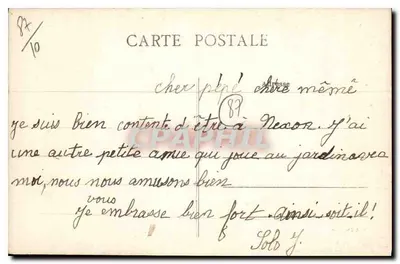 87/10
CARTE POSTALE
cher pépé chère mémé
87
je suis bien contente d'être à Nexon. J'ai
une autre petite amie qui joue au jardin avec
moi, nous nous amusons bien
vous
Je embrasse bien fort. ainsi soit-il!